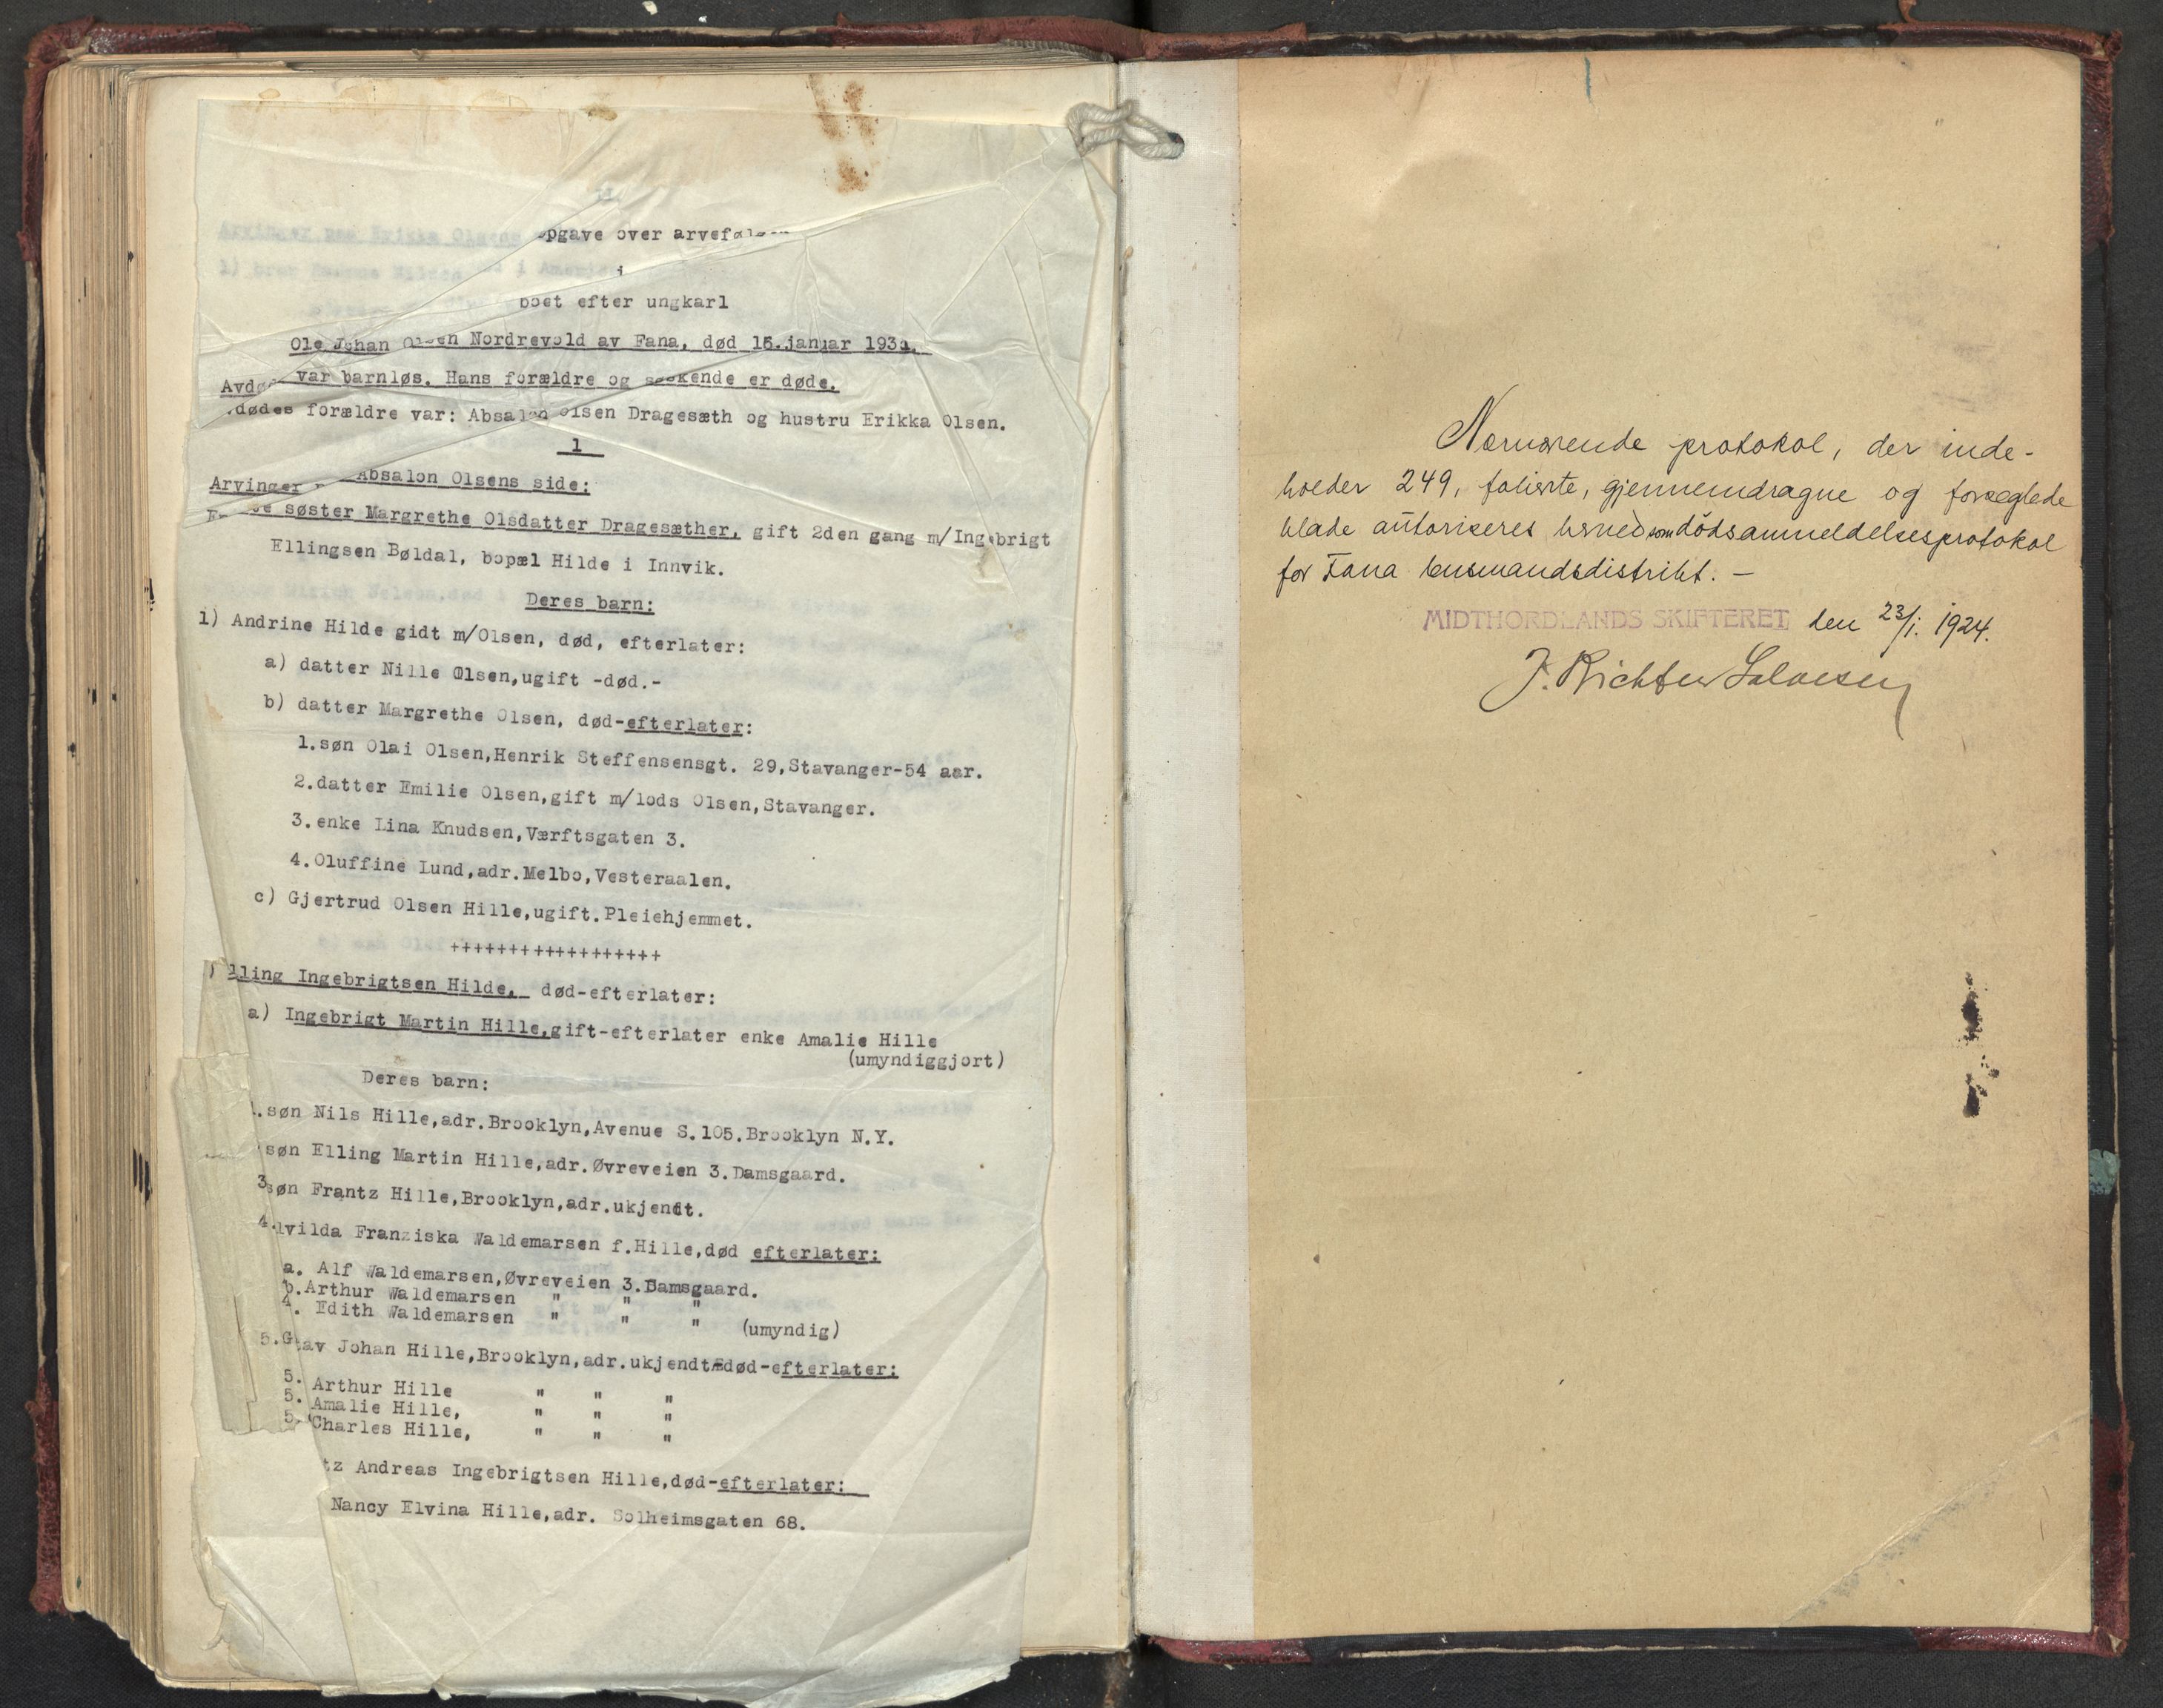 opgave over arvefølgen
i
boet efter ungkarl
Ole Johan Olsen Nordrevold av Fana, død 15.januar 193
Avdøde var barnløs. Hans forældre og søskende er døde.
dødes forældre var: Absalon Olsen Dragesæth og hustru Erikka Olsen.
1
Arvinger Absalon Olsens side:
søster Margrethe Olsdatter Dragesæther, gift 2den gang m/Ingebrigt
Ellingsen Bøldal, bopæl Hilde i Innvik.
Deres barn:
1) Andrine Hilde gidt m/Olsen, død, efterlater:
a) datter Nille Olsen,ugift -død.-
b) datter Margrethe Olsen, død-efterlater:
1.søn Olai Olsen,Henrik Steffensensgt. 29,Stavanger-54 aar.
2.datter Emilie Olsen,gift m/lods Olsen,Stavanger.
3.enke Lina Knudsen,Værftsgaten 3.
4.Oluffine Lund,adr.Melbo,Vesteraalen.
c) Gjertrud Olsen Hille,ugift.Pleiehjemmet.
++++++++++++++++++
) Elling Ingebrigtsen Hilde, død-efterlater:
a) Ingebrigt Martin Hille,gift-efterlater enke Amalie Hille
(umyndiggjort)
Deres barn:
1.søn Nils Hille,adr.Brooklyn,Avenue S.105.Brooklyn N.Y.
søn Elling Martin Hille,adr.Øvreveien 3.Damsgaard.
3 søn Frantz Hille,Brooklyn,adr.ukjendt.
4.lvilda Franziska Waldemarsen f.Hille,død efterlater:
a. Alf Waldemarsen,Øvreveien 3.Damsgaard.
b.Arthur Waldemarsen " " "
4. Edith Waldemarsen " " " (umyndig)
5.G tav Johan Hille,Brooklyn,adr.ukjendt død-efterlater:
5. Arthur Hille " " "
5. Amalie Hille, " " "
5. Charles Hille, " " "
tz Andreas Ingebrigtsen Hille,død-efterlater:
Nancy Elvina Hille,adr. Solheimsgaten 68.
Nærværende protokol, der inde-
holder 249, folierte, gjennemdragne og forseglede
blade autoriseres herved som dödsanmeldelsesprotokol
for Fana lensmandsdistrikt. –
MIDTHORDLANDS SKIFTERET den 23/1. 1924.
J. Richter Salvesen